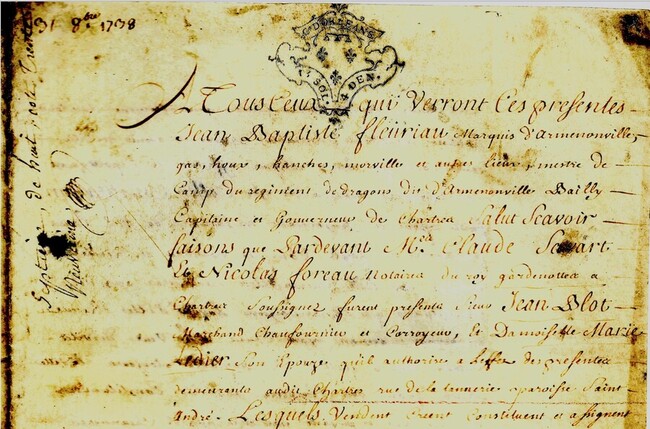 31 8bre 1738
G. D'ORLEANS
SOL. 4 DEN.
A Tous Ceux qui Verront Ces presentes
Jean Baptiste fleuriau Marquis d'Armenonville,
gas, houx, hanches, morville et autres lieux, mestre de
Camp du regiment de dragons dit d'Armenonville Bailly
Capitaine et Gouverneur de Chartres Salut Scavoir
faisons que Pardevant Me Claude
Et Nicolas foreau notaires du roy gardenottes a
Chartres Soussignez furent presents Sieur Jean Blot
Marchand Chaufournier et Corroyeur, et Damoiselle Marie
Ledier Son Epouze qu'il authorise a l'effet des presentes
demeurants audit Chartres rue de la tannerie paroisse Saint
André. Lesquels Vendent Creent Constituent et assignent